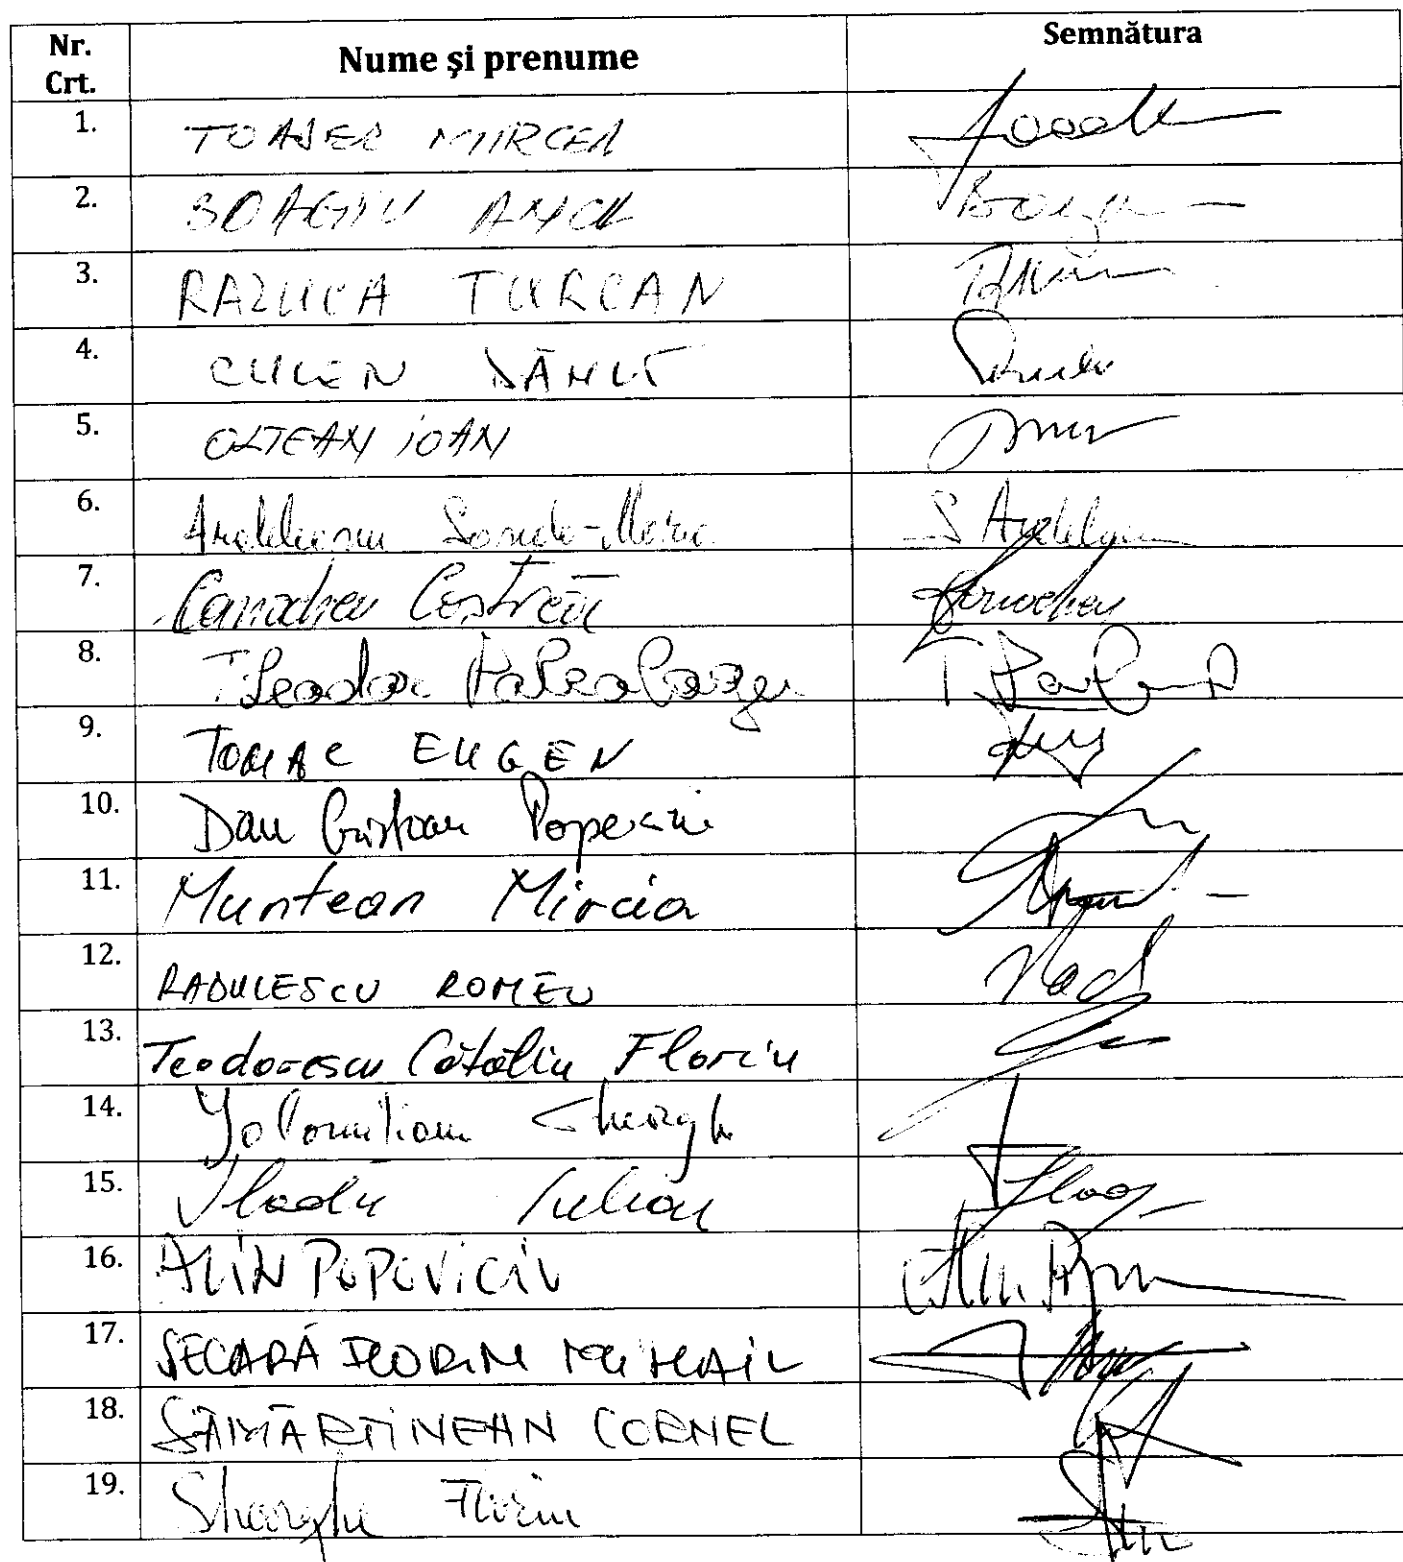 Nr. Crt. Nume și prenume Semnătura
1. TOADER MIRCEA
2. BOAGIU ANCA
3. RALUCA TURCAN
4. CULEN DĂNUȚ
5. OLTEAN IOAN
6. Ardeleanu Sanda-Maria S Ardelean
7. Canacheu Costică Canacheu
8. Theodor Paleologu
9. TOMAC EUGEN
10. Dan Cristian Popescu
11. Muntean Mircea
12. RADULESCU ROMEO Rad
13. Teodorescu Cătălin Florin
14. Ialomitianu Gheorghe
15. Vladu Iulian
16. ALIN POPOVICIU
17. SECARĂ FLORIN MIHAIL
18. SĂMĂRTINEAN CORNEL
19. Gheorghe Florin